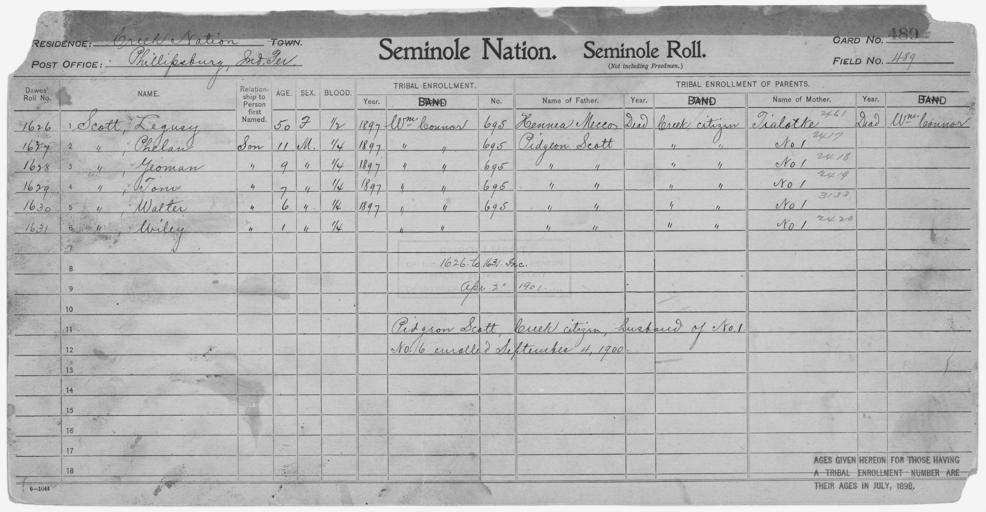 RESIDENCE: Creek Nation TOWN.
POST OFFICE: Phillipsburg, Ind. Ter.
Seminole Nation. Seminole Roll.
(Not including Freedmen.)
CARD NO. 489
FIELD NO. 489
Dawes' Roll No. NAME. Relationship to Person first Named. AGE. SEX. BLOOD. TRIBAL ENROLLMENT. TRIBAL ENROLLMENT OF PARENTS.
Year. BAND No. Name of Father. Year. BAND Name of Mother. Year. BAND
1626 1 Scott, Legusy 50 F 1/2 1897 Wm Connor 695 Hennea Mecco Dead Creek citizen Tialotke 2461 Dead Wm Connor
1627 2 " , Phelan Son 11 M. 1/4 1897 " " 695 Pidgeon Scott " " No 1 2417
1628 3 " , Yeoman " 9 " 1/4 1897 " " 695 " " " " No 1 2418
1629 4 " , Tom " 7 " 1/4 1897 " " 695 " " " " No 1 2419
1630 5 " , Walter " 6 " 1/4 1897 " " 695 " " " " No 1
1631 6 " , Wiley " 1 " 1/4 " " " " " " No 1 2420
7
8 1626 to 1631 Inc.
9 Apr 2" 1901
10
11 Pidgeon Scott, Creek citizen, husband of No.1.
12 No. 6 enrolled September 4, 1900.
13
14
15
16
17
18
AGES GIVEN HEREON FOR THOSE HAVING
A TRIBAL ENROLLMENT NUMBER ARE
THEIR AGES IN JULY, 1898.
6-1044